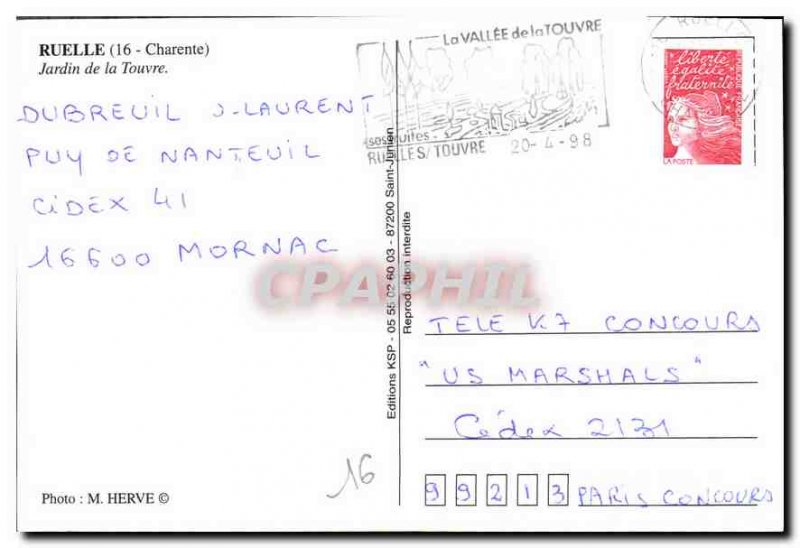 RUELLE (16 - Charente)
Jardin de la Touvre.
DUBREUIL J-LAURENT
PUY DE NANTEUIL
CiDEX 41
16600 MORNAC
La VALLÉE de la TOUVRE
ses truites
RUELLE S/TOUVRE 20-4-98
liberté
égalité
fraternité
LA POSTE
Editions KSP - 05 55 02 60 03 - 87200 Saint-Junien
Reproduction interdite
CPAPHIL
TELE K7 CONCOURS
"US MARSHALS"
Cédex 2131
99213 PARIS CONCOURS
16
Photo : M. HERVE ©